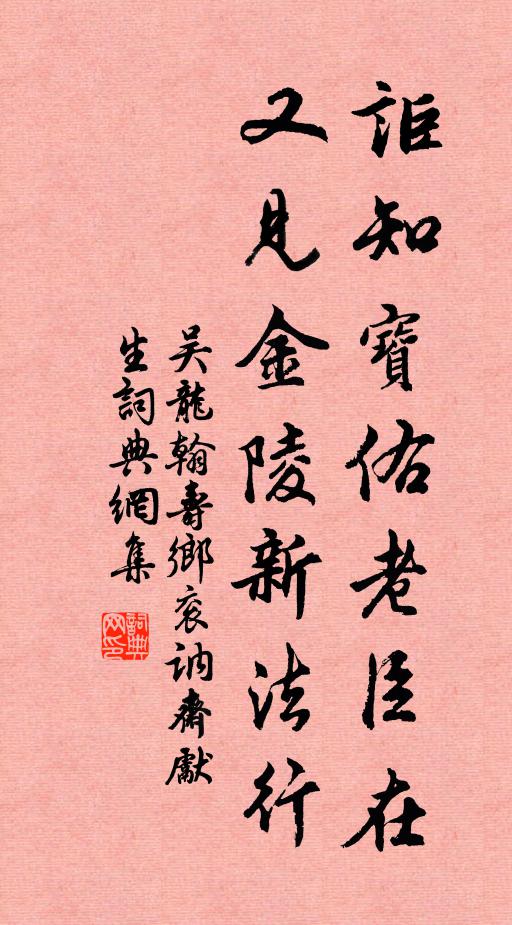 詎知寶佑老臣在
又見金陵新法行
吴龍翰壽鄉袞訥齋獻
生詞典網集
詞典網印